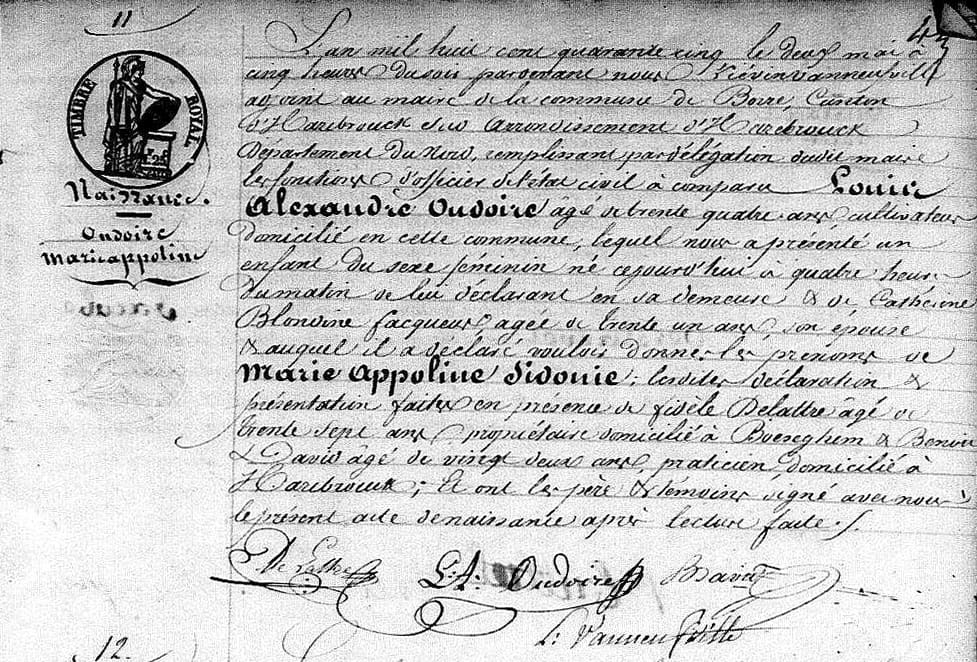 11
43
TIMBRE ROYAL
Naissance.
Oudoire
Marie appoline
L'an mil huit cent quarante cinq le deux mai à
cinq heures du soir pardevant nous Liévin Vanneufville
adjoint au maire de la commune de Borre, Canton
d'Hazebrouck arrondissement d'Hazebrouck
Département du Nord, remplissant par délégation dudit maire
les fonctions d'officier de l'état civil à comparu Louis
Alexandre Oudoire âgé de trente quatre ans cultivateur
domicilié en cette commune, lequel nous a présenté un
enfant du sexe féminin né cejourd'hui à quatre heures
du matin de lui déclarant en sa demeure & de Cathérine
Blondine facqueur agée de trente un ans son épouse
& auquel il a déclaré vouloir donner les prénoms de
Marie Appoline Sidonie; lesdites déclaration &
présentation faites en présence de fidèle Delattre âgé de
trente sept ans propriétaire domicilié à Boeseghem & Benoit
L David agé de vingt deux ans, praticien domicilié à
Hazebrouck; Et ont les père & témoins signé avec nous
le présent acte de naissance après lecture faite ./.
De Lattre
L. A. Oudoire
David
L: Vanneufville
12.